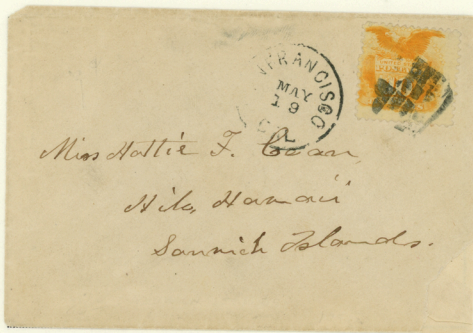 SAN FRANCISCO
MAY
19
CAL
10
Miss Hattie F. Coan,
Hilo, Hawaii
Sanwich Islands.